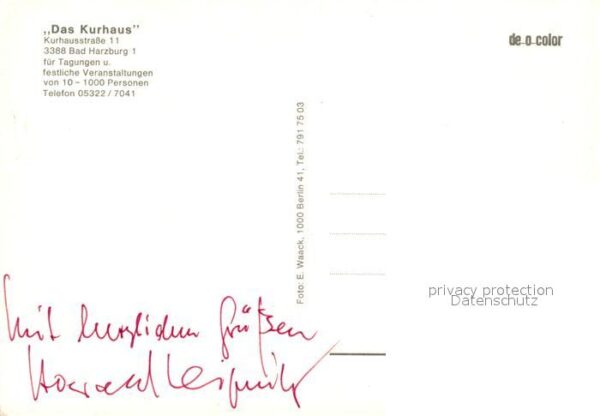 „Das Kurhaus"
Kurhausstraße 11
3388 Bad Harzburg 1
für Tagungen u.
festliche Veranstaltungen
von 10 – 1000 Personen
Telefon 05322 / 7041
de-o-color
Foto: E. Waack, 1000 Berlin 41, Tel.: 791 75 03
privacy protection
Datenschutz
Mit herzlichen Grüßen